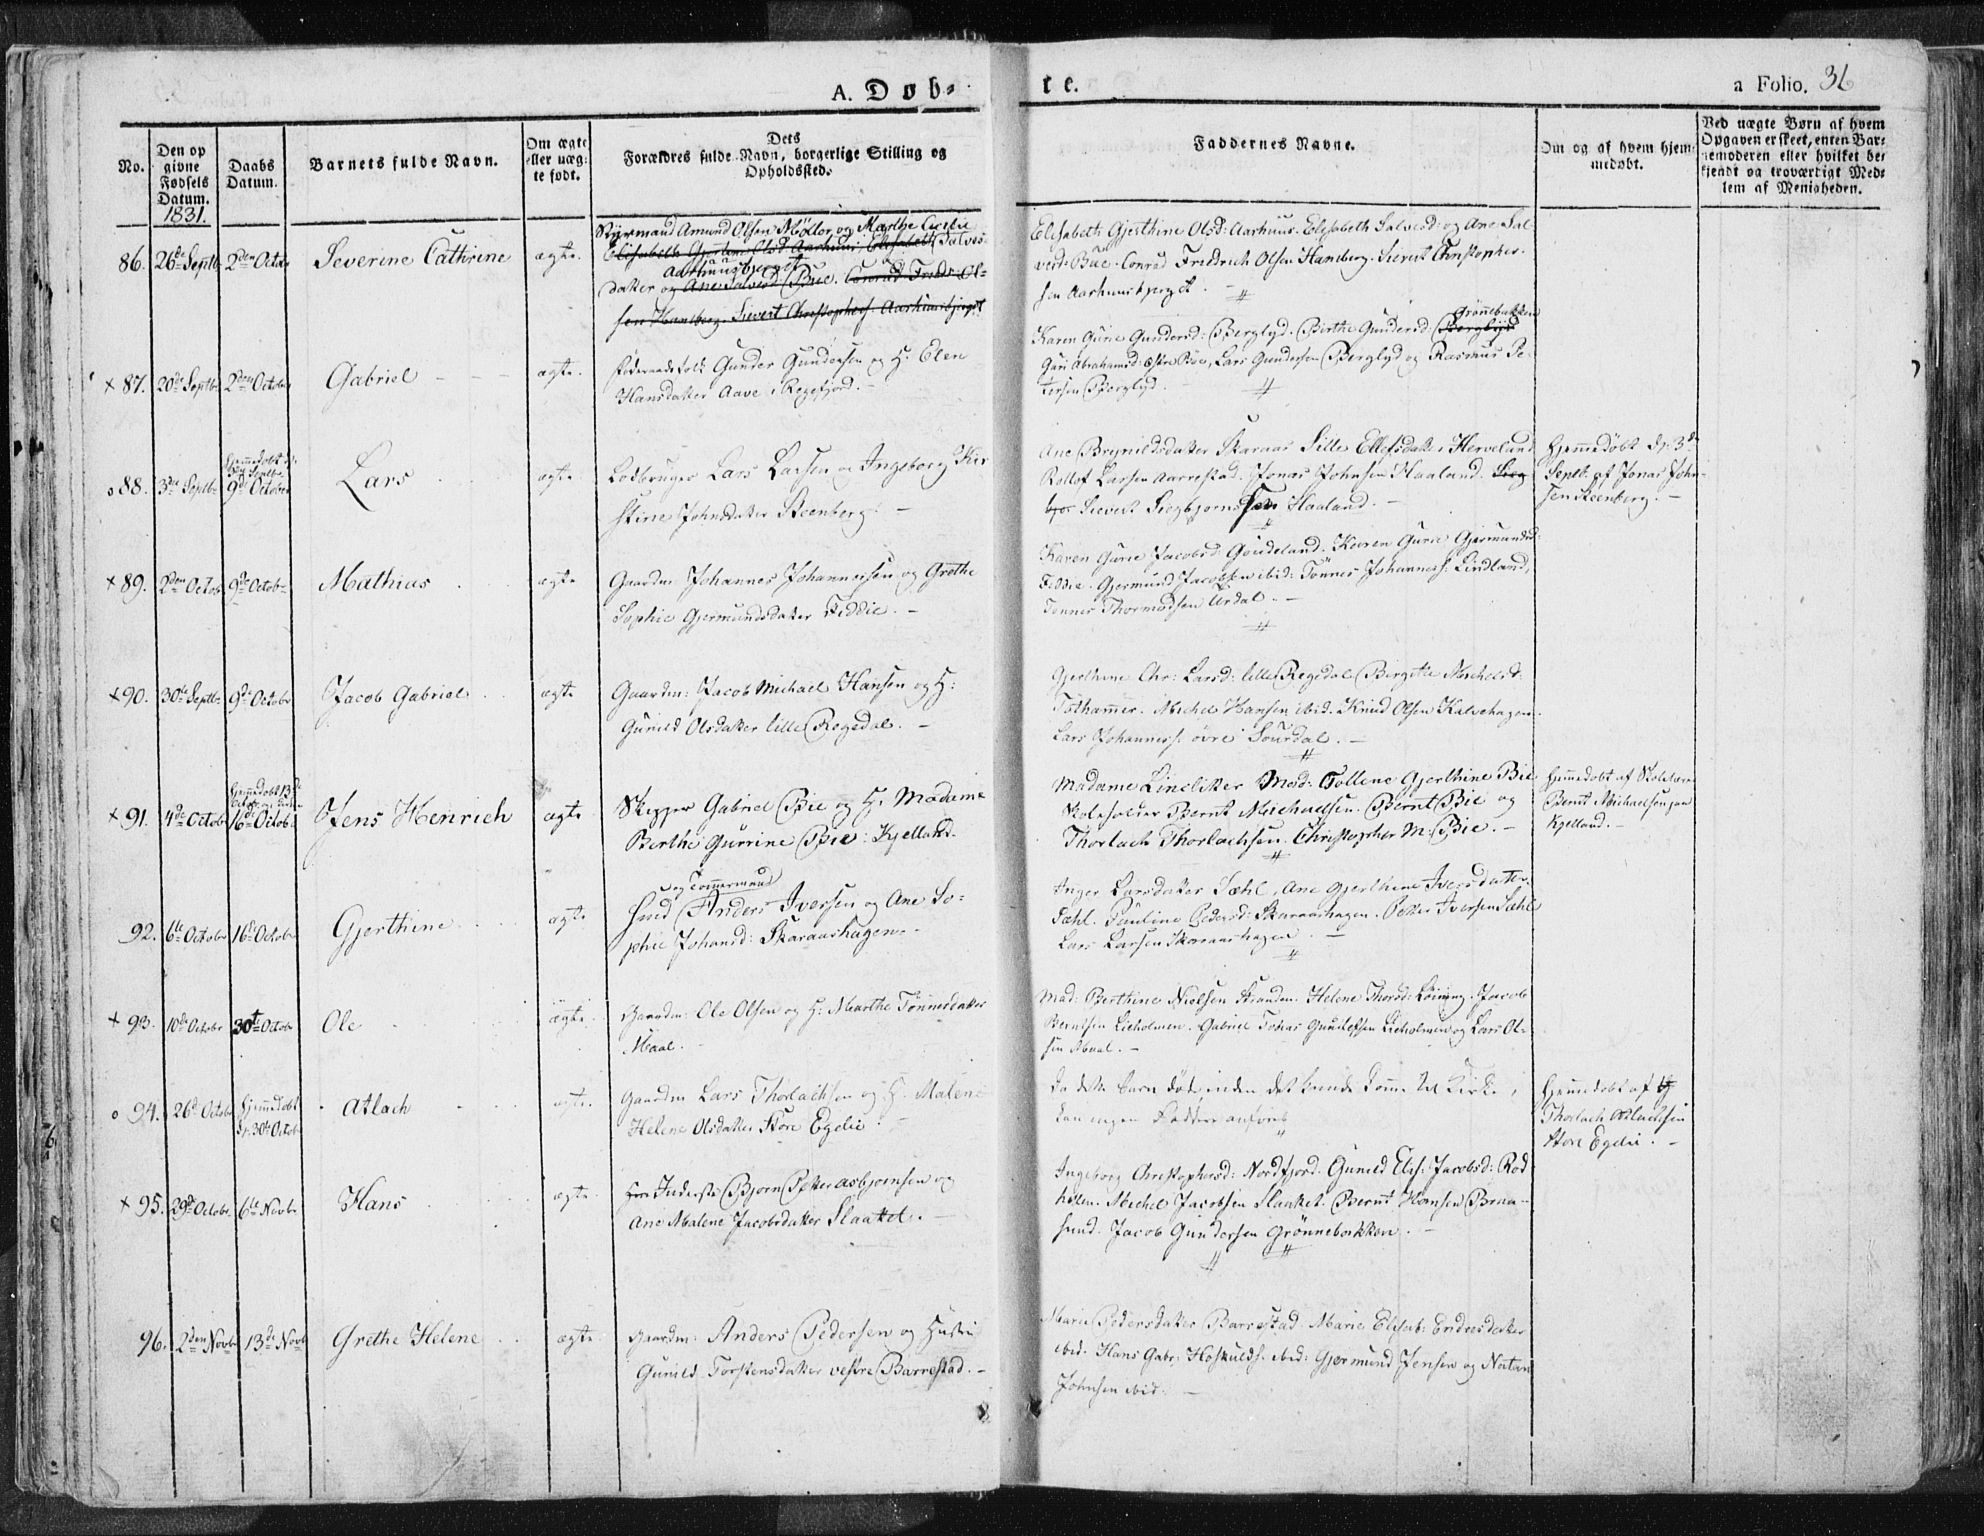 A. Døb-
te.
a Folio. 36
No.
Den op
givne
Fødsels
Datum.
1831.
Daabs
Datum.
Barnets fulde Navn.
Om ægte
eller uæg-
te født.
Dets
Forældres fulde Navn, borgerlige Stilling og
Opholdssted.
Faddernes Navne.
Om og af hvem hjem-
medøbt.
Ved uægte Børn af hvem
Opgaven er skeet, enten Bar-
nemoderen eller hvilket be-
kjendt og troværdigt Med-
lem af Menigheden.
86. 26de Septb 2den Octob Severine Cathrine ægte.
Styrmand Amund Olsen Möller og Marthe Cecilie
Elisabeth Gjertine Olsd Aarhuus Elisabeth Salves-
Aarhuusbjerget
datter og Ane Salvesd Bue. Conrad Fredr. Ol-
sen Hamberg. Sievert Christophers. Aarhuusbjerget
Elisabeth Gjerthine Olsd: Aarhuus. Elisabeth Salvesd: og Ane Sal-
vesd: Bue. Conrad Friedrich Olsen Hamberg. Sievert Christopher-
sen Aarhuusbjerget. -
+ 87. 20de Septbr 2den October Gabriel ægte.
Gunder Gundersen og H. Elen
Hansdatter Aave i Rægefjord. -
Grönnebakken
Karen Gurie Gundersd: Berglyd. Birthe Gundersd: Berglyd
Guri Abrahamsd: Böe, Lars Gundersen Berglyd og Rasmus Pe-
tersen Berglyd.
o 88. 3de Septb. 9de October Lars ægte
Lodbruger Lars Larsen og Ingeborg Kir-
stine Johnsdatter Steenberg. -
Ane Brynildsdatter Skaraas Sille Ellefsdatter Herveland
Rollof Larsen Aarrestad. Jonas Johnsen Haaland. Sieg
bjør Sievert Siegbjørnssen Haaland. -
Hjemmedøbt d. 3de
Septb. af Jonas John-
sen Steenberg. -
+ 89. 2den Octob 9de Octob. Mathias ægte
Gaardm Johannes Johannessen og Grethe
Sophie Gjermundsdatter Fidie. -
Karen Gurie Jacobsd: Goudeland. Karen Gurie Gjermundsd:
Fidie. Gjermund Jacobsen ibid: Tönnes Johanness: Lindland,
Tönnes Thormodsen Urdal. -
+ 90. 30te Septb. 9de Octobr Jacob Gabriel ægte
Gaardm: Jacob Michael Hansen og H:
Gunild Olsdatter lille Regedal. -
Gjerthine Chr: Larsd: lille Regedal Birgitte Michelsd:
Tothammer. Michel Hansen ibid. Knud Olsen Kalvehagen.
Lars Johanness: øvre Sourdal. -
+ 91. 4de Octob 16de Octob. Jens Henrich ægte
Skipper Gabriel Bie og H. Madame
Berthe Gurrine Bie: Kjelland.
Madame Mad: Tollene Gjerthine Bie
Skoleholder Bernt Michaelsen. Bernt Bie og
Thorlach Thorlachsen. Christopher M: Bie. -
Hjemmedøbt af Skolelærer
Bernt Michaelsen paa
Kjelland. -
92. 6te Octobr 16de Octobr Gjerthine ægte
og Tömmermand
Smed Anders Iversen og Ane So-
phie Johansd: Skaraashagen. -
Inger Larsdatter Sæhl, Ane Gjerthine Iversdatter
Sæhl. Pauline Pedersd: Skaraashagen. Petter Iversen Sæhl
Lars Larsen Skaraashagen. -
+ 93. 10de Octobr 30te Octobr Ole ægte.
Gaardm: Ole Olsen og H: Marthe Tönnesdatter
Maal. -
Mad: Berthine Nielsen Stranden. Helene Thorsd: Löining. Jacob
Berntsen Lieholmen. Gabriel Tobias Gundersen Lieholmen og Lars Ol-
sen Maal. -
o 94. 26de Octobr Hjemmedøbt
d. 30te Octob Atlach ægte.
Gaardm Lars Thorlachsen og H. Malene
Helene Olsdatter Store Egelie. -
Da dette barn døde, inden det kunde komme til Kirke,
kan ingen Faddere anføres
Hjemmedøbt af
Thorlach Atlachsen
Store Egelie. -
+ 95. 29de Octobr. 6te Novbr Hans ægte.
Inderste Bjørn Petter Asbjørnsen og
Ane Malene Jacobsdatter Slaattet. -
Ingeborg Christophersd: Nordfjord. Gunild Elis: Jacobsd: Rod-
hollen. Michel Jacobsen Slanket. Bernt Hansen Braa-
sund. Jacob Gundersen Grönnebækken. -
96. 2den Novbr 13de Novb Grethe Helene ægte
Gaardm: Anders Pedersen og Hustru
Gunild Torstensdatter vestre Barrestad. -
Marie Pedersdatter Barrestad. Marie Elisab: Endresdatter
ibid. Hans Gabr: Hoskulds. ibid: Gjermund Jensen og Natan
Johnsen ibid: -